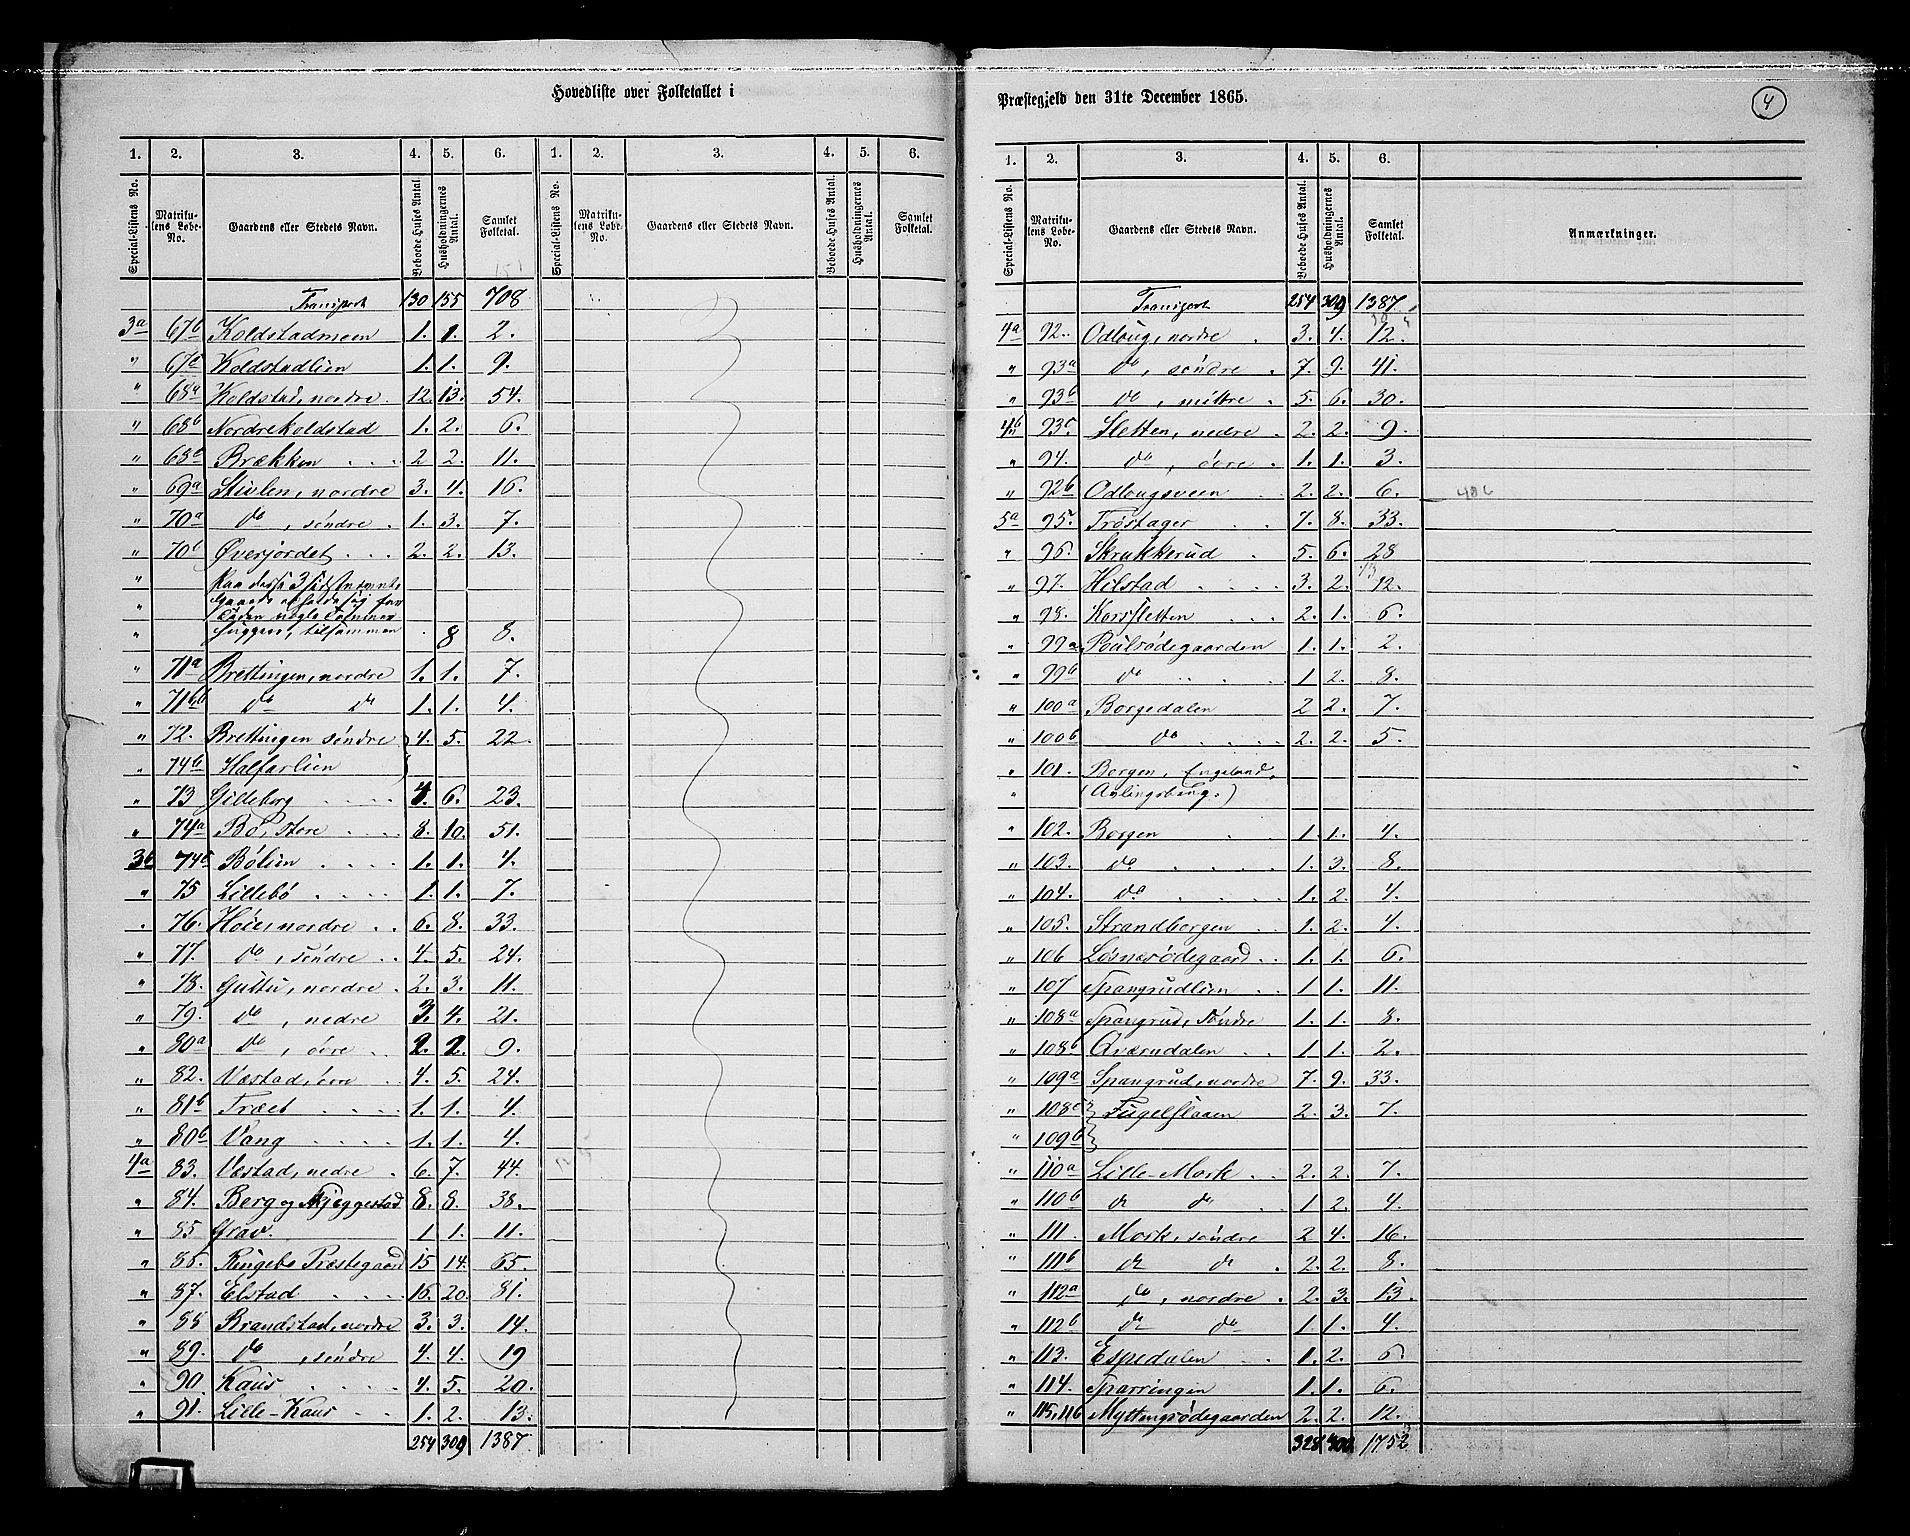 Hovedliste over Folketallet i
1. 2. 3. 4. 5. 6. 1. 2. 3. 4. 5. 6.
Special-Listens No. Matrikulens Løbe-No. Gaardens eller Stedets Navn. Beboede Huses Antal. Husholdningernes Antal. Samlet Folketal. Special-Listens No. Matrikulens Løbe-No. Gaardens eller Stedets Navn. Beboede Huses Antal. Husholdningernes Antal. Samlet Folketal.
Transport 130 155 708
3a 67b Koldstadmoen 1. 1. 2.
" 67c Koldstadlien 1. 1. 9.
" 68a Koldstad, nordre 12. 13. 54.
" 68b Nordrekoldstad 1. 2. 6.
" 68c Brækken 2 2. 11.
" 69a Stulen, nordre 3. 4. 16.
" 70a do, søndre 1. 3. 7.
" 70b Øverjordet 2. 2. 13.
" Paa disse 3 sidstnævnte
" Gaarde opholde sig for
Tiden nogle Tømmer
" huggere, tilsammen 8 8.
" 71a Brettingen, nordre 1. 1. 7.
" 71b do do 1. 1. 4.
" 72. Brettingen søndre 4. 5. 22.
" 74b Halfarlien
" 73 Gilleborg 4. 6. 23.
" 74a Bø, store 8. 10. 51.
3b 74c Bølien 1. 1. 4.
" 75 Lillebø 1. 1. 7.
" 76. Høie, nordre 6. 8. 33.
" 77. do, søndre 4. 5. 24.
" 78. Guttu, nordre 2. 3. 11.
" 79. do, nedre 3. 4. 21.
" 80a do, øvre 2. 2. 9.
" 82. Væstad, øvre 4. 5. 24.
" 81b Træet 1. 1. 4.
" 80b Vang 1. 1. 4.
4a 83. Væstad, nedre 6. 7. 44.
" 84. Berg og Skjæggestad 8. 8. 38.
" 85 Grav. 1 1. 11.
" 86. Ringebo Præstegaard 15 14. 65.
" 87. Elstad 16. 20. 81.
" 88 Brandstad, nordre 3. 3. 14.
" 89. do, søndre 4. 4. 19
" 90. Kaus 4. 5. 20.
" 91. Lille-Kaus 1. 2. 13.
254 309 1387.
Præstegjeld den 31te December 1865.
4
1. 2. 3. 4. 5. 6.
Special-Listens No. Matrikulens Løbe-No. Gaardens eller Stedets Navn. Beboede Huses Antal. Husholdningernes Antal. Samlet Folketal. Anmærkninger.
Transport 254 309 1387
4a 92. Odloug, nordre 3. 4. 12.
" 93a do, søndre 7. 9. 41.
" 93b do, mittre 5. 6. 30.
4b 93c Sletten, nedre 2. 2. 9.
" 94. do, øvre 1. 1. 3.
" 92b Odlougsveen 2. 2. 6. 486
5a 95. Trøstager 7. 8. 33.
" 96. Skrukkerud 5. 6. 28
" 97. Hilstad 3. 2. 12.
" 98. Korsletten 2. 1. 6.
" 99a Poulsødegaarden 1. 1. 2.
" 99b do 1 2. 8.
" 100a Borgedalen 2 2. 7.
" 100b do 2. 2. 5.
" 101. Borgen, Engeland,
" (Avlingsbrug.)
" 102. Borgen 1. 1. 4.
" 103. do 1. 3. 8.
" 104. do 1. 2 4.
" 105. Strandborgen 1. 2. 4.
" 106 Løsnesødegaard 1. 1. 6.
" 107 Spangrudlien 1 1. 11.
" 108a Spangrud, søndre 1. 1. 8.
" 108b Aværudalen 1 1. 2.
" 109a Spangrud, nordre 7. 9. 33.
" 108c Fugelslaaen 2. 3. 7.
" 109b
" 110a Lille-Mork 2. 2. 7.
" 110b do do 1 2. 4.
" 111. Mork, søndre 2 4. 16.
" 111b do do 2. 2. 8.
" 112a do, nordre 2. 3. 13.
" 112b do do 1. 1. 4.
" 113. Espedalen 1. 2. 6.
" 114. Sparringen 1. 1. 6.
" 115, 116 Myttingsødegaarden 2. 2. 12.
328. 400. 1752